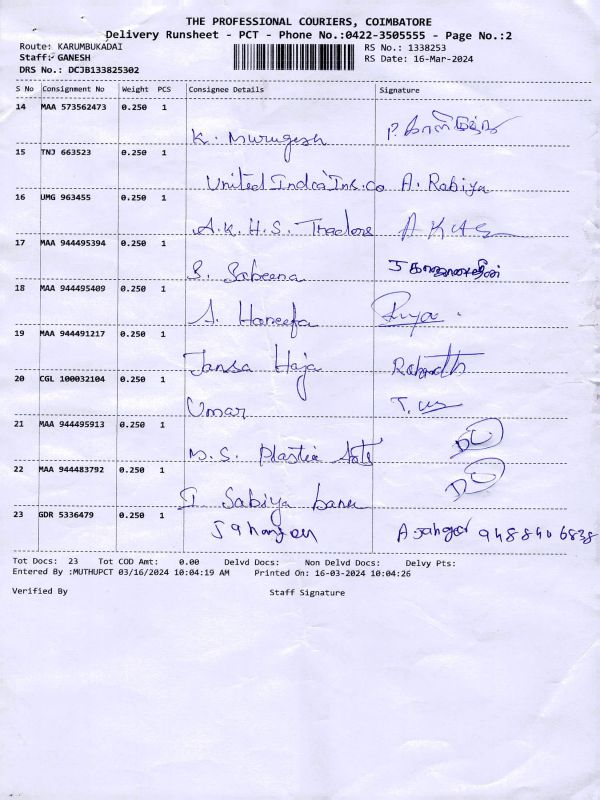 THE PROFESSIONAL COURIERS, COIMBATORE
Delivery Runsheet - PCT - Phone No.:0422-3505555 - Page No.:2
Route: KARUMBUKADAI RS No.: 1338253
Staff: GANESH RS Date: 16-Mar-2024
DRS No.: DCJB133825302
S No Consignment No Weight PCS Consignee Details Signature
14 MAA 573562473 0.250 1
K. Murugesh
15 TNJ 663523 0.250 1
United India Ins. Co A. Rabiya
16 UMG 963455 0.250 1
A.K.H.S. Traders AKHS
17 MAA 944495394 0.250 1
S. Sabeena
18 MAA 944495409 0.250 1
A. Haneefa
19 MAA 944491217 0.250 1
Jansa Haja
20 CGL 100032104 0.250 1
Umar
21 MAA 944495913 0.250 1
M.S. Plastic
22 MAA 944483792 0.250 1
Sabiya banu
23 GDR 5336479 0.250 1
9488406838
Tot Docs: 23 Tot COD Amt: 0.00 Delvd Docs: Non Delvd Docs: Delvy Pts:
Entered By :MUTHUPCT 03/16/2024 10:04:19 AM Printed On: 16-03-2024 10:04:26
Verified By Staff Signature